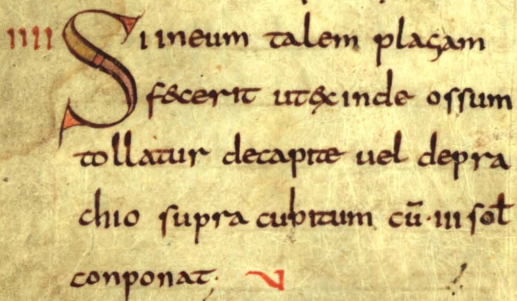 IIII Si in eum talem plagam
fecerit ut exinde ossum
tollatur de capite uel de pra
chio supra cubitum cū · iii sol̄
conponat; V